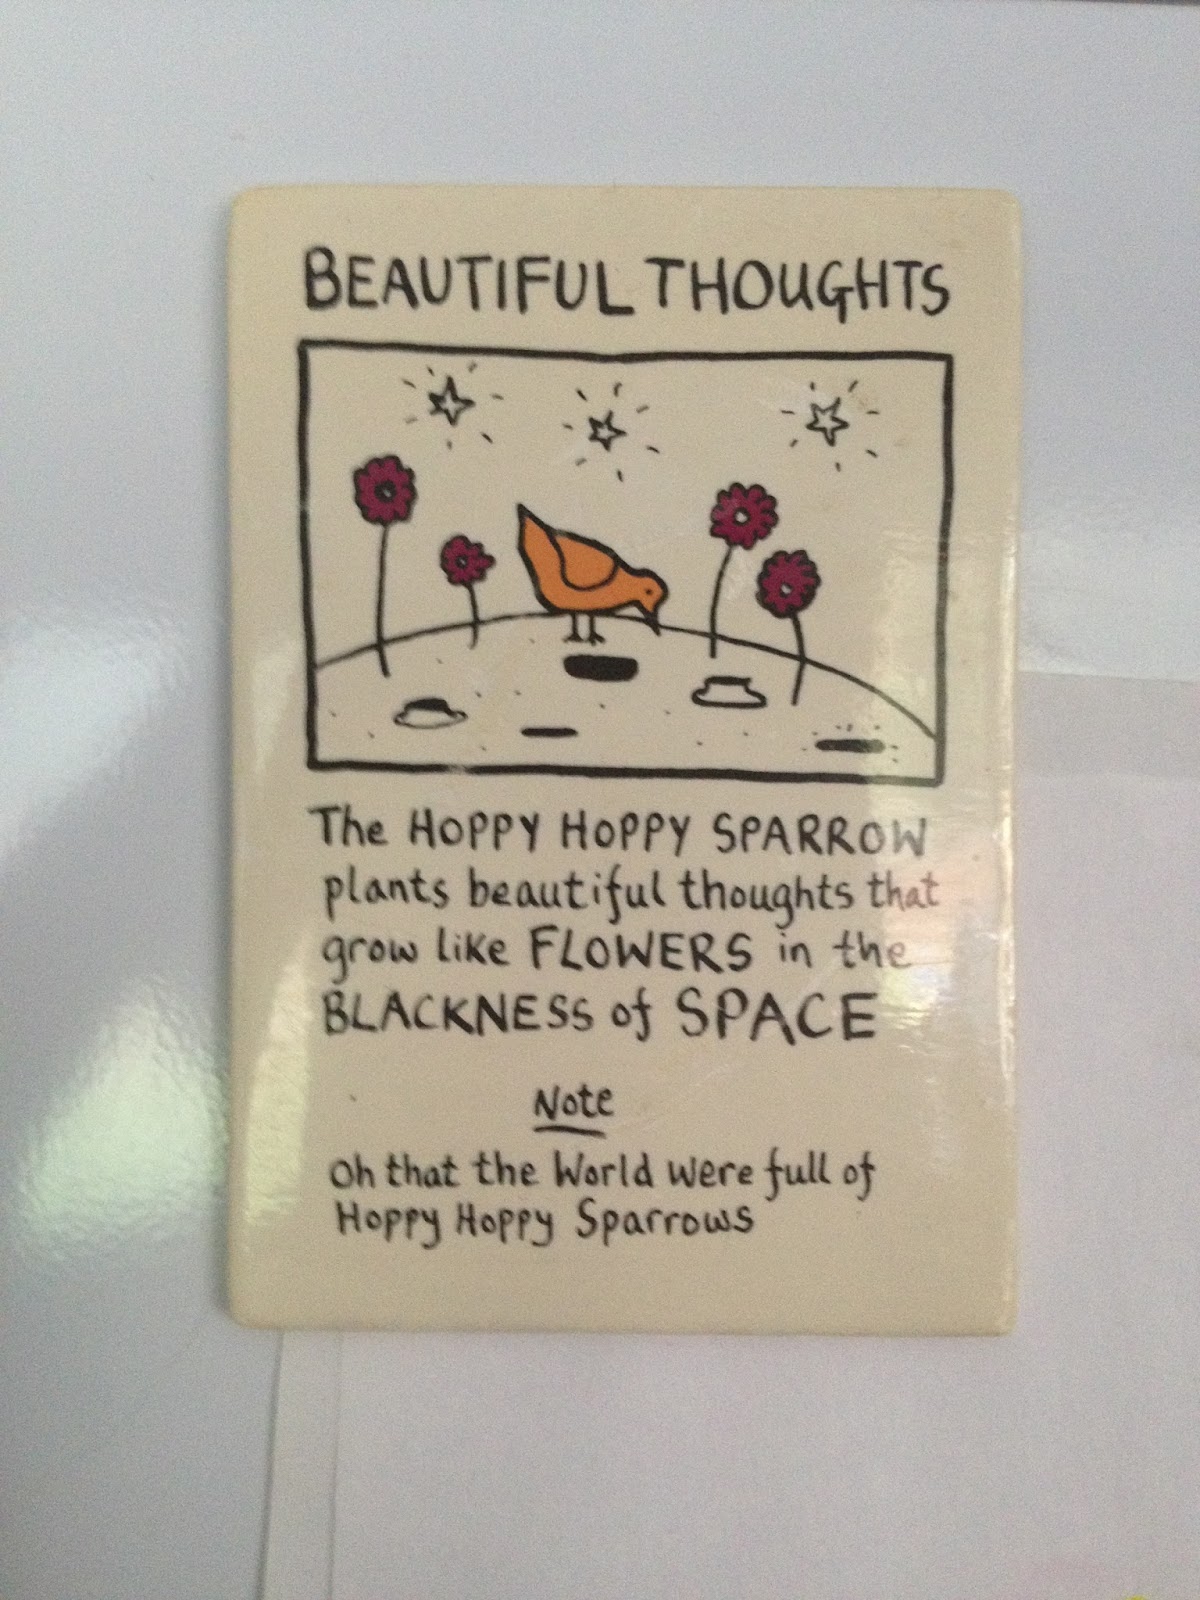 BEAUTIFUL THOUGHTS
The HOPPY HOPPY SPARROW
plants beautiful thoughts that
grow like FLOWERS in the
BLACKNESS of SPACE
Note
Oh that the World were full of
Hoppy Hoppy Sparrows